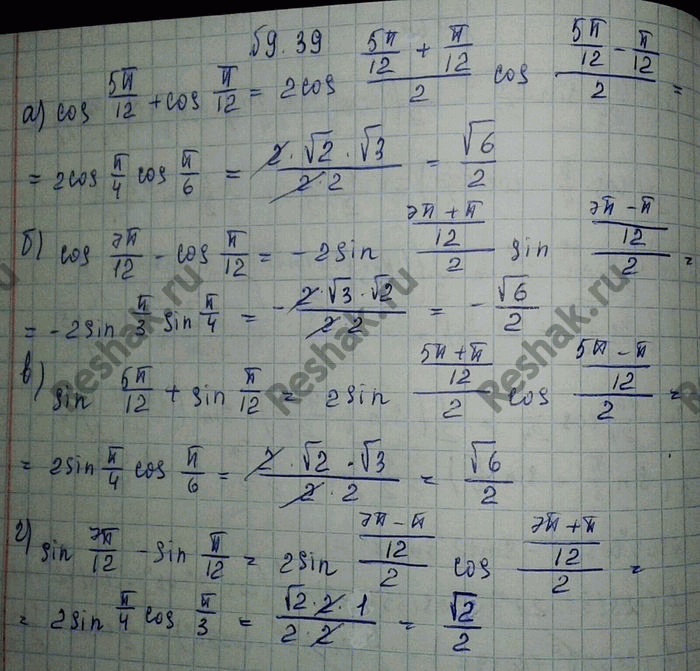 б9.39
а) cos 5π/12 + cos π/12 = 2cos (5π/12 + π/12)/2 cos (5π/12 - π/12)/2 =
= 2cos π/4 cos π/6 = (2·√2·√3)/(2·2) = √6/2
б) cos 7π/12 - cos π/12 = -2sin ((7π+π)/12)/2 sin ((7π-π)/12)/2 =
= -2sin π/3 sin π/4 = -(2·√3·√2)/(2·2) = -√6/2
в) sin 5π/12 + sin π/12 = 2sin ((5π+π)/12)/2 cos ((5π-π)/12)/2 =
= 2sin π/4 cos π/6 = (2·√2·√3)/(2·2) = √6/2
г) sin 7π/12 - sin π/12 = 2sin ((7π-π)/12)/2 cos ((7π+π)/12)/2 =
= 2sin π/4 cos π/3 = (√2·2·1)/(2·2) = √2/2
Reshak.ru
Reshak.ru
Reshak.ru